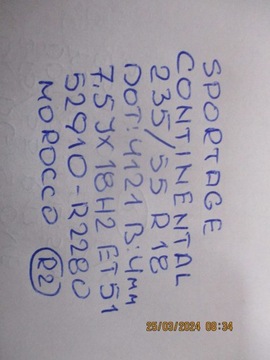 SPORTAGE
CONTINENTAL
235/55 R18
DOT:4121 B:4mm
7,5JX18H2 ET51
52910-R2280
MOROCCO (R2)
25/03/2024 08:34